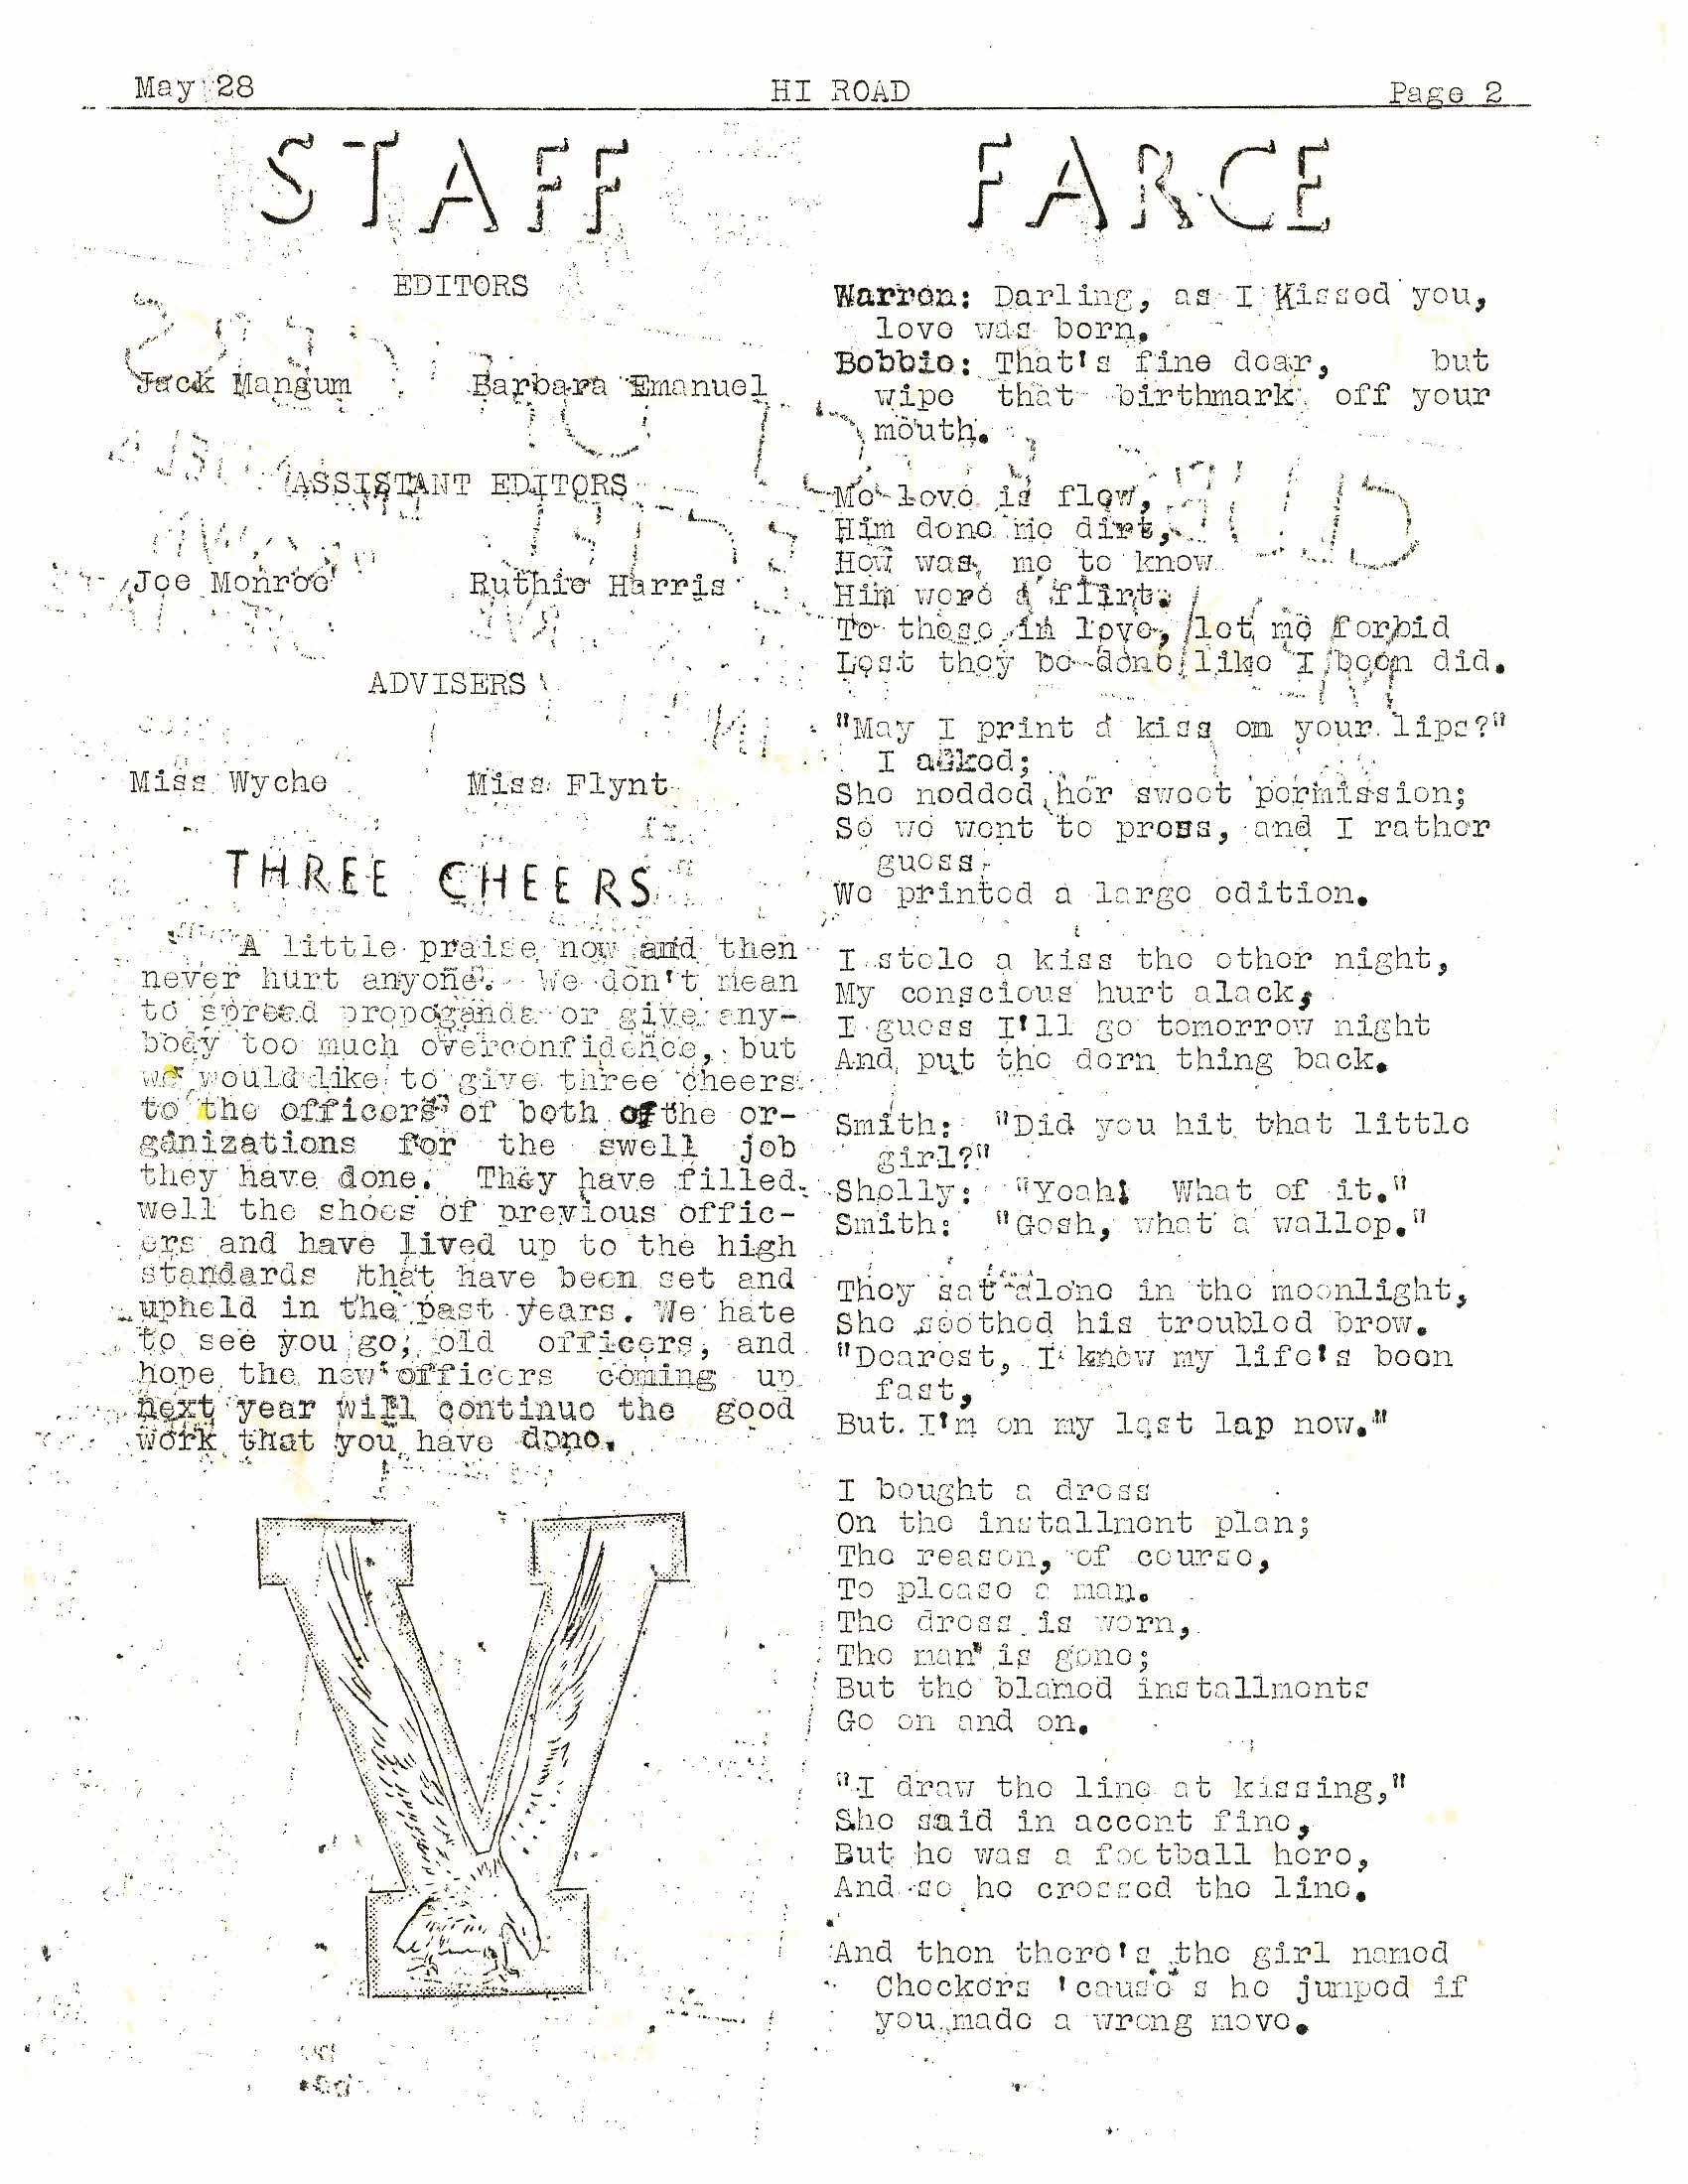 May 28 HI ROAD Page 2
STAFF
EDITORS
Jack Mangum Barbara Emanuel
ASSISTANT EDITORS
Joe Monroe Ruthie Harris
ADVISERS
Miss Wyche Miss Flynt
THREE CHEERS
A little praise now and then
never hurt anyone. We don't mean
to spread propoganda or give any-
body too much overconfidence, but
we would like to give three cheers
to the officers of both of the or-
ganizations for the swell job
they have done. They have filled
well the shoes of previous offic-
ers and have lived up to the high
standards that have been set and
upheld in the past years. We hate
to see you go, old officers, and
hope the new officers coming up
next year will continue the good
work that you have done.
V
FARCE
Warren: Darling, as I Kissed you,
love was born.
Bobbie: That's fine dear, but
wipe that birthmark off your
mouth.
Me love is flew,
Him done me dirt,
How was me to know
Him were a flirt.
To those in love, let me forbid
Lest they be done like I been did.
"May I print a kiss om your lips?"
I asked;
She nodded her sweet permission;
So we went to press, and I rather
guess
We printed a large edition.
I stole a kiss the other night,
My conscious hurt alack,
I guess I'll go tomorrow night
And put the dern thing back.
Smith: "Did you hit that little
girl?"
Shelly: "Yeah! What of it."
Smith: "Gosh, what a wallop."
They sat alone in the moonlight,
She soothed his troubled brow.
"Dearest, I know my life's been
fast,
But I'm on my last lap now."
I bought a dress
On the installment plan;
The reason, of course,
To please a man.
The dress is worn,
The man is gone;
But the blamed installments
Go on and on.
"I draw the line at kissing,"
She said in accent fine,
But he was a football hero,
And so he crossed the line.
And then there's the girl named
Checkers 'cause s he jumped if
you made a wrong move.